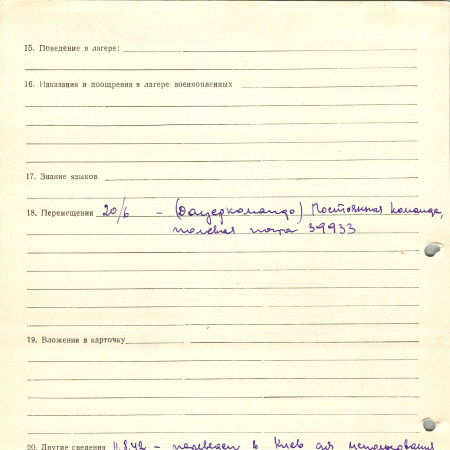 15. Поведение в лагере:
16. Наказания и поощрения в лагере военнопленных
17. Знание языков
18. Перемещения 20/6 - (Дауеркомандо) Постоянная команда,
полевая почта 39933
19. Вложения в карточку
20. Другие сведения 11.8.42 - переведен в Киев для использования